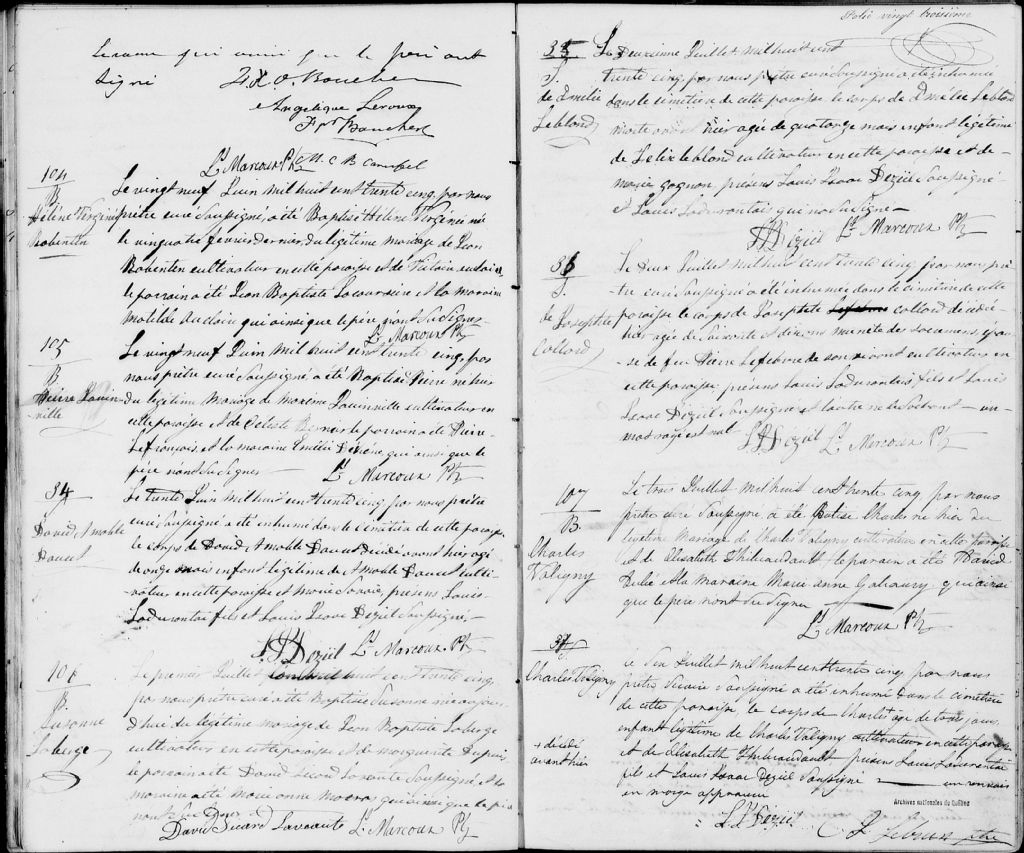 qui ainsi que le père ont
signé
Angelique Leroux
Frs Boucher
Lt Marcoux Ptr M C B Campbel
104
B.
Hélène Virginie
Robenten
Le vingt neuf Juin mil huit cent trente cinq, par nous
prêtre curé soussigné, a été Baptisé Hélène Virginie née
le vingquatre fevrier dernier, du légitime mariage de Jean
Robenten cultivateur en cette paroisse et de
le parrain a été Jean Baptiste Lacoursière et la maraine
Matilde Auclair qui ainsi que le père n'ont su signer
Lt Marcoux Ptr
105
B.
Pierre Rouin-
ville
Le vingt neuf Juin mil huit cent trente cinq, par
nous prêtre curé soussigné a été Baptisé Pierre né hier
du légitime Mariage de maxime Rouinville cultivateur en
cette paroisse et de Celeste Bernier le parrain a été Pierre
Lefrançois et la maraine Emélie qui ainsi que le
père n'ont su signer
Lt Marcoux Ptr
34
David Amable
Daveut
Le trente Juin mil huit cent trente cinq par nous prêtre
curé soussigné a été inhumé dans le cimetière de cette paroisse
le corps de David Amable Daveut décédé avant hier agé
de onze mois enfant légitime de Amable Daveut culti-
vateur en cette paroisse et Marie présens Louis
Ladurantai fils et Louis Isaac Dézièl soussigné,
LI Dézièl Lt Marcoux Ptr
106
B.
Susanne
Laberge
Le premier Juillet mil huit cent trente cinq,
par nous prêtre curé a été Baptisé Susanne née aujour-
d'hui du légitime mariage de Jean Baptiste Laberge
cultivateur en cette paroisse et de marguerite Dupuis,
le parrain a été David Sicard Lavaante soussigné, et la
maraine a été Marianne qui ainsi que le pè-
David Sicard Lavaante Lt Marcoux Ptr
Folio vingt troisième
35
S.
de Amelie
Leblond
Le Deuxième Juillet mil huit cent
trente cinq, par nous prêtre curé soussigné a été inhumée
dans le cimetière de cette paroisse le corps de Amélie Leblond
morte avant hier agée de quatorze mois enfant légitime
de Felix leblond cultivateur en cette paroisse et de
marie gagnon, présens Louis Isaac Dézièl soussigné
et Louis Ladurantai qui n'a su signer
LI Dézièl Lt Marcoux Ptr
36
S.
de Josephte
Collard
Le deux Juillet mil huit cent trente cinq par nous prê-
tre curé soussigné a été inhumée dans le cimetière de cette
paroisse le corps de Josephte collard décédée
hier agée de soixante et dix ans munie des sacremens, épou-
se de feu Pierre Lefebvre de son vivant cultivateur en
cette paroisse présens Louis Ladurantai fils et Louis
Isaac Dézièl soussigné et l'autre ne le sachant — un
mot rayé est nul
LI Dézièl Lt Marcoux Ptr
107
B
Charles
Valigny
Le trois Juillet mil huit cent trente cinq par nous
prêtre curé soussigné a été Batisé Charles né hier du
légitime Mariage de Charles Valigny cultivateur en cette paroisse
et de Elisabeth Thibaudault le parain a été David
Délié et la maraine Marie anne Galarny qui ainsi
que le père n'ont su signer
Lt Marcoux Ptr
37
Charles Valigny
+ décédé
avant hier
Le Six Juillet mil huit cent trente cinq, par nous
prêtre Vicaire soussigné a été inhumé dans le cimetière
de cette paroisse le corps de Charles + agé de trois jours
enfant légitime de Charles Valigny cultivateur en cette paroisse
et de Elisabeth Thibaudault, présens Louis Ladurantai
fils et Louis Isaac Dézièl soussigné — un renvoi
en marge approuvé
LI Dézièl
C. Z. ptre
Archives nationales du Québec